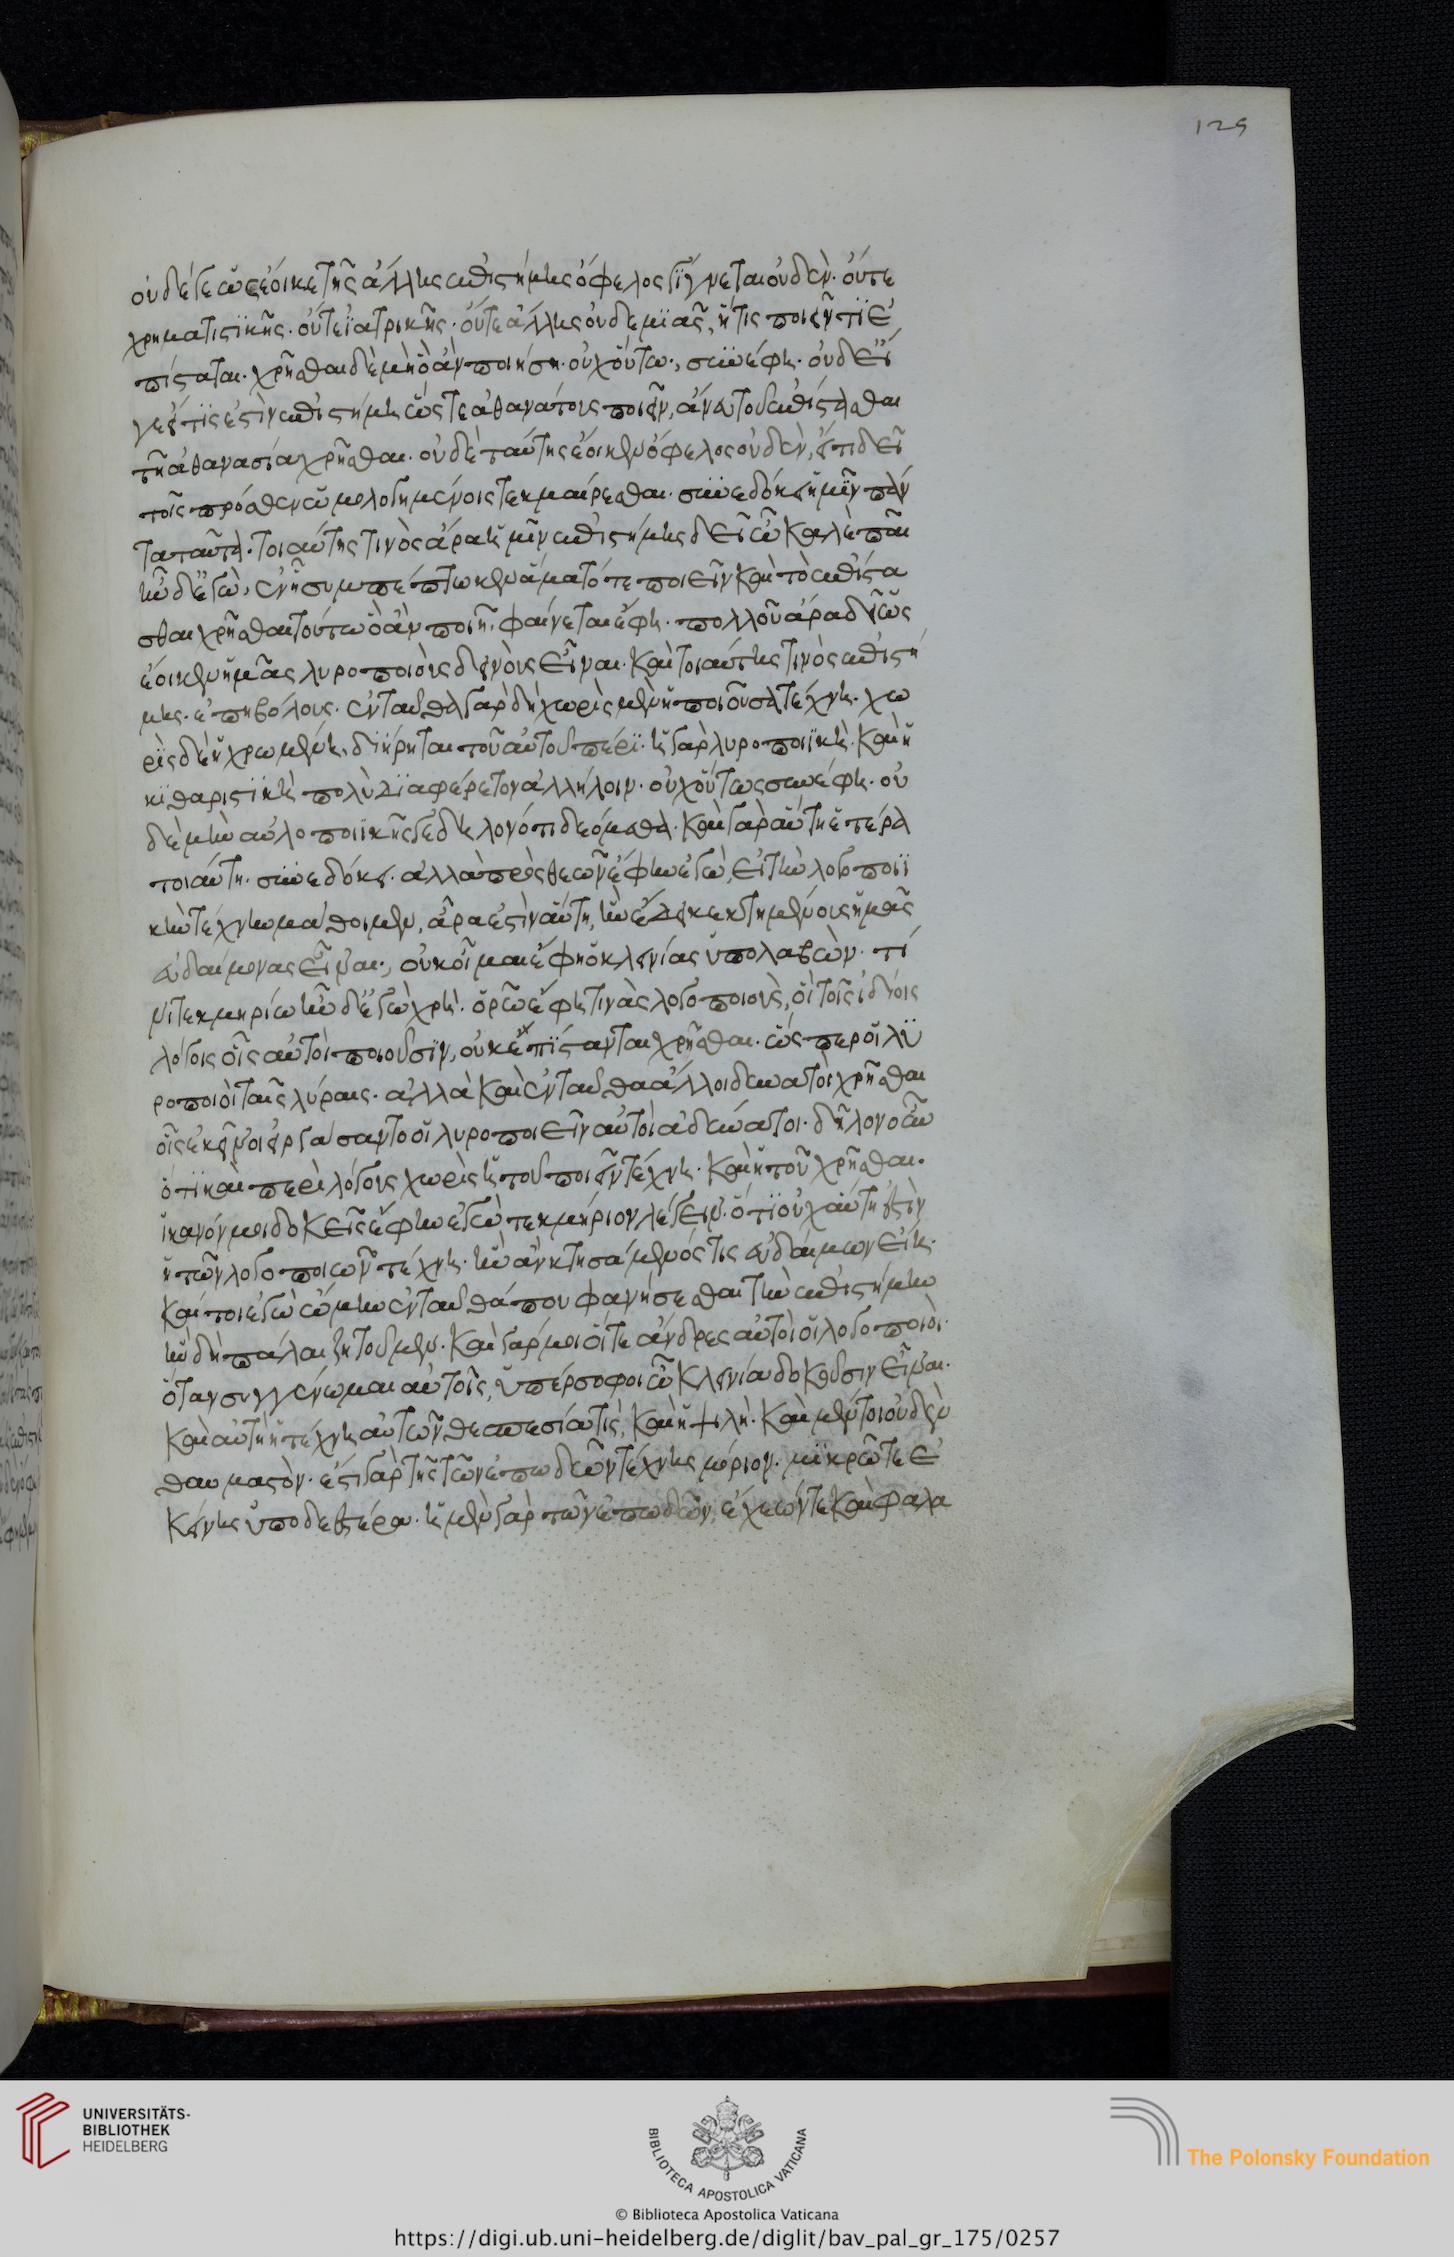 οὐδέ γε ὡς ἔοικε τῆς ἄλλης ἐπιστήμης ὄφελος γίγνεται οὐδὲν· οὔτε
χρηματιστϊκῆς· οὔτε ϊατρικῆς· οὔτε ἄλλης οὐδεμϊᾶς, ἥτις ποιεῖν τϊ ἐ
πίσταται· χρῆσθαι δὲ μὴ ὧ ἀν ποιήση· οὐχ οὕτω·, συνέφη· οὐδὲ εἴ
γέ τϊς ἐστὶν ἐπιστήμη ὥστε ἀθανάτους ποιεῖν, ἄνευ τοῦ ἐπίστασθαι
τῆ ἀθανασία χρῆσθαι· οὐδὲ ταύτης ἔοικεν ὄφελος οὐδὲν, εἴ τι δεῖ
τοῖς πρόσθεν ὡμολογημένοις τεκμαίρεσθαι· συνεδόκει ἡμῖν πάν
τα ταῦτα· τοιαύτης τινὸς ἄρα ἡμῖν ἐπιστήμης δεῖ ὦ καλὲ παῖ
ἦν δ' ἐγὼ, ἐν ῆ συμπέπτωκεν ἅμα τό τε ποιεῖν καὶ τὸ ἐπίστα
σθαι χρῆσθαι τούτω ὧ ἂν ποιῆ· φαίνεται ἔφη· πολλοῦ ἄρα δεῖ ὡς
ἔοικεν ἡμᾶς λυροποιοὺς δεινοὺς εἶναι· καὶ τοιαύτης τινὸς ἐπιστή
μης ἐπηβόλους· ἐνταῦθα γὰρ δὴ χωρὶς μὲν ἡ ποιοῦσα τέχνη· χω
ρὶς δὲ ἡ χρωμένη, διήρηται τοῦ αὐτοῦ πέρϊ· ἡ γὰρ λυροποιϊκὴ· καὶ ἡ
κϊθαριστϊκὴ πολὺ δϊαφέρετον ἀλλήλοιν· οὐχ οὕτως συνέφη· οὐ
δὲ μὴν αὐλοποιϊκῆς γε δῆλον ὅτι δεόμεθα· καὶ γὰρ αὕτη ἑτέρα
τοιαύτη· συνεδόκει· ἀλλὰ πρὸς θεῶν ἔφην ἐγὼ, εἰ τὴν λογοποιϊ
κὴν τέχνην μάθοιμεν, ἆρα ἐστὶν αὕτη, ἣν ἔδει κεκτημένους ἡμᾶς
εὐδαίμονας εἶναι·, οὐκ οἶμαι ἔφη ὁ κλεινίας ὑπολαβὼν· τί
νι τεκμηρίω ἦν δ' ἐγὼ χρῆ· ὁρῶ ἔφη τινὰς λογοποιοὺς, οἳ τοῖς ἰδίοις
λόγοις οἷς αὐτοὶ ποιοῦσϊν, οὐκ ἐπϊστανται χρῆσθαι· ὥσπερ οἱ λυ
ροποιοὶ ταῖς λύραις· ἀλλὰ καὶ ἐνταῦθα ἄλλοι δυνατοὶ χρῆσθαι
οἷς ἐκεῖνοι εἰργάσαντο οἱ λυροποιεῖν αὐτοὶ ἀδύνατοι· δῆλον οὖν
ὅτϊ καὶ περὶ λόγους χωρὶς ἡ τοῦ ποιεῖν τέχνη· καὶ ἡ τοῦ χρῆσθαι·
ἱκανόν μοι δοκεῖς ἔφην ἐγὼ τεκμήριον λέγειν· ὅτϊ οὐχ αὕτη ἐστὶν
ἡ τῶν λογοποιῶν τέχνη· ἣν ἂν κτησάμενός τις εὐδαίμων εἴη·
καί τοι ἐγὼ ὤμην ἐνταῦθά που φανήσεσθαι τὴν ἐπιστήμην
ἣν δὴ πάλαι ζητοῦμεν· καὶ γάρ μοι οἵ τε ἄνδρες αὐτοὶ οἱ λογοποιοὶ·
ὅταν συγγένωμαι αὐτοῖς, ὑπέρσοφοι ὦ κλεινία δοκοῦσιν εἶναι·
καὶ αὐτὴ ἡ τέχνη αὐτῶν θεσπεσία τὶς, καὶ ὑψηλὴ· καὶ μέντοι οὐδὲν
θαυμαστὸν· ἔστι γὰρ τῆς τῶν ἐπωδῶν τέχνης μόριον· μϊκρῶ τε ἐ
κείνης ὑποδεεστέρα· ἡ μὲν γὰρ τῶν ἐπωδῶν, ἔχεών τε καὶ φαλα
129
UNIVERSITÄTS-
BIBLIOTHEK
HEIDELBERG
BIBLIOTECA APOSTOLICA VATICANA
The Polonsky Foundation
© Biblioteca Apostolica Vaticana
https://digi.ub.uni-heidelberg.de/diglit/bav_pal_gr_175/0257